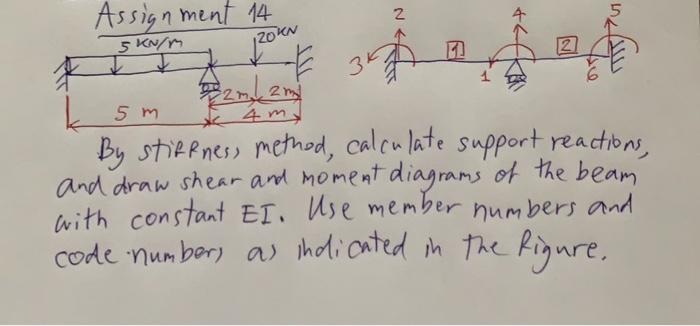 Assignment 14
5 KN/m
20KN
2m
2m
5 m
4 m
2
4
5
1
2
3
1
6
By stiffness method, calculate support reactions,
and draw shear and moment diagrams of the beam
with constant EI. Use member numbers and
code numbers as indicated in the figure.